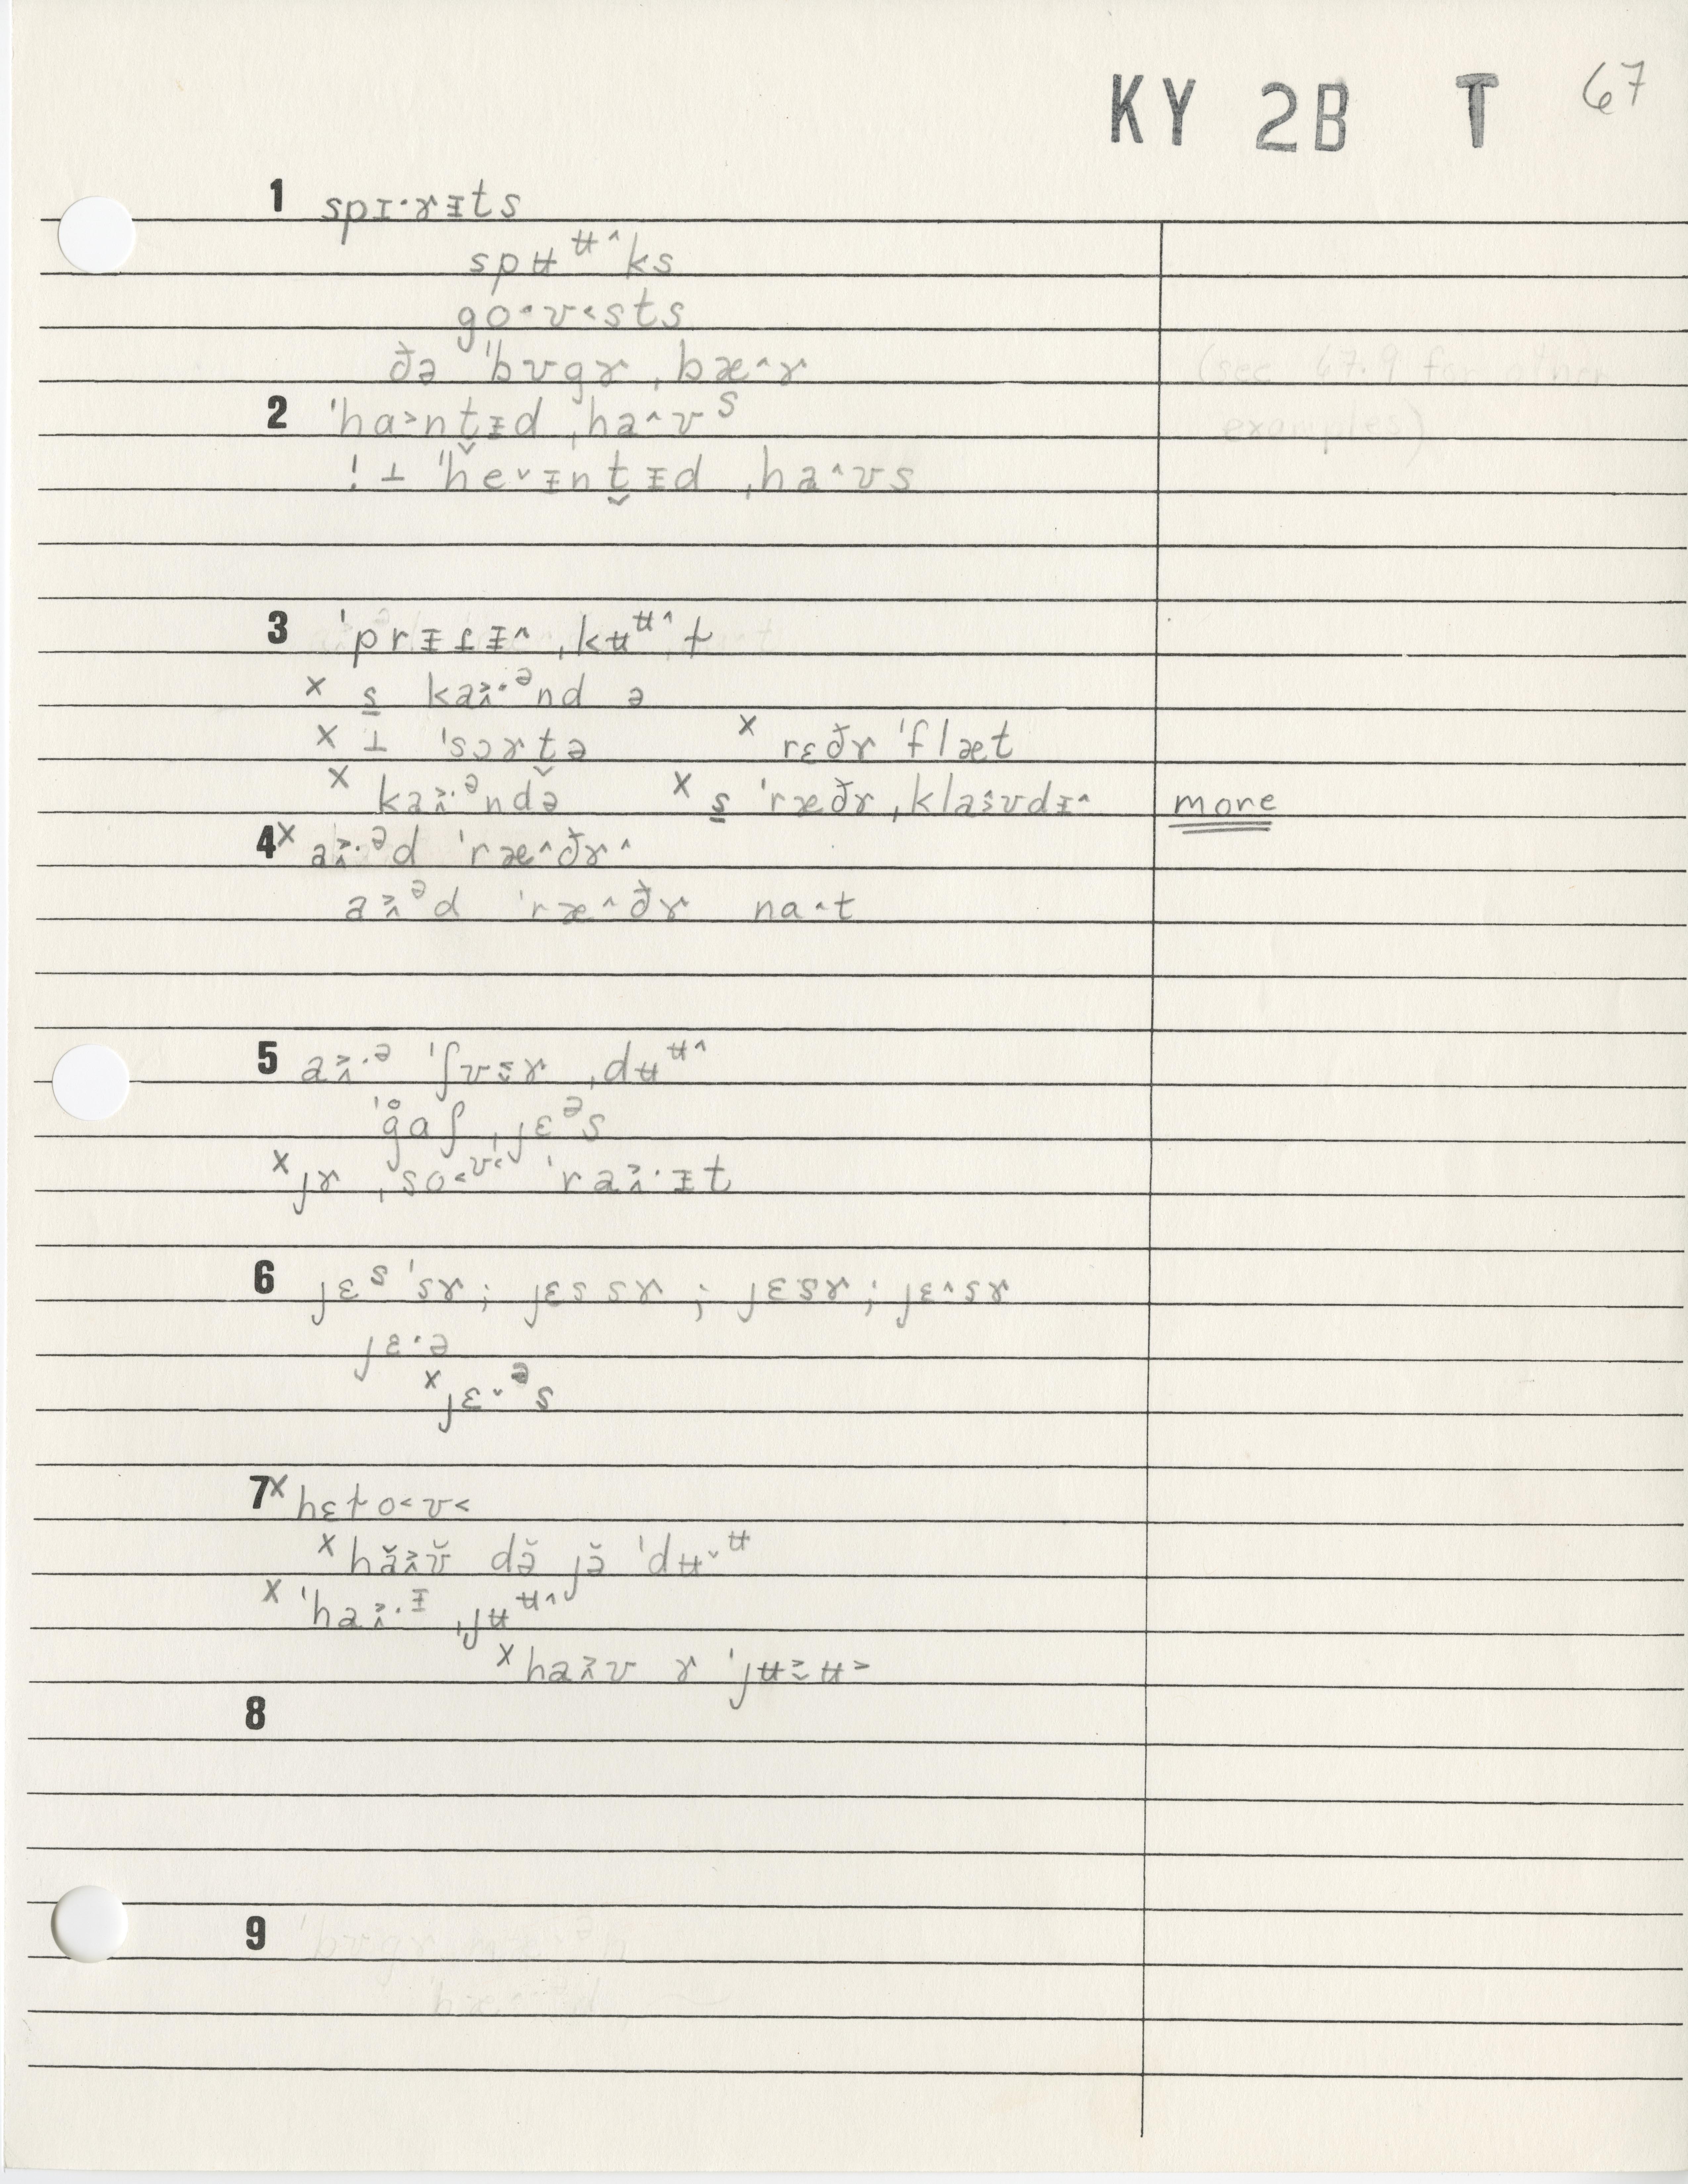 KY 2B T 67
1 spɪ·ɤᵻts
spʉᶶ^ks
go˂·ʊ˂sts
ðə ˈbʊgɤ ˌbæ^ɤ
2 ˈha˃nt̬ᵻd ˌha^ʊˢ
! ⊥ ˈhe˅ᵻnt̬ᵻd ˌha^ʊs
3 ˈprᵻɾᵻ^ ˌkʉᶶ^t
x s̲ ka·ᵊnd ə
x ⊥ ˈsɔɤt̬ə x rɛðɤ ˈflæt
x ka·ᵊndə x s̲ ˈræðɤ ˌklaʊdᵻ^ more
4 x a·ᵊd ˈræ^ðɤ^
aᵊd ˈræ^ðɤ na^t
5 a·ᵊ ˈʃʊɤ ˌdʉᶶ^
ˈg̊aʃ ˌjɛᵊs
x jɤ ˌso˂ᶷ˂ ˈra·ᵻt
6 jɛˢ ˈsɤ ; jɛs sɤ ; jɛsɤ ; jɛ^sɤ
jɛ·ə
x jɛ˅ᵊs
7 x hɛto˂ʊ˂
x hăʊ̆ də̆ jə̆ ˈdʉ˅ᶶ
x ˈha·ᵻ ˌjʉᶶ^
x haʊ ɤ ˈjʉʉ˃
8
9